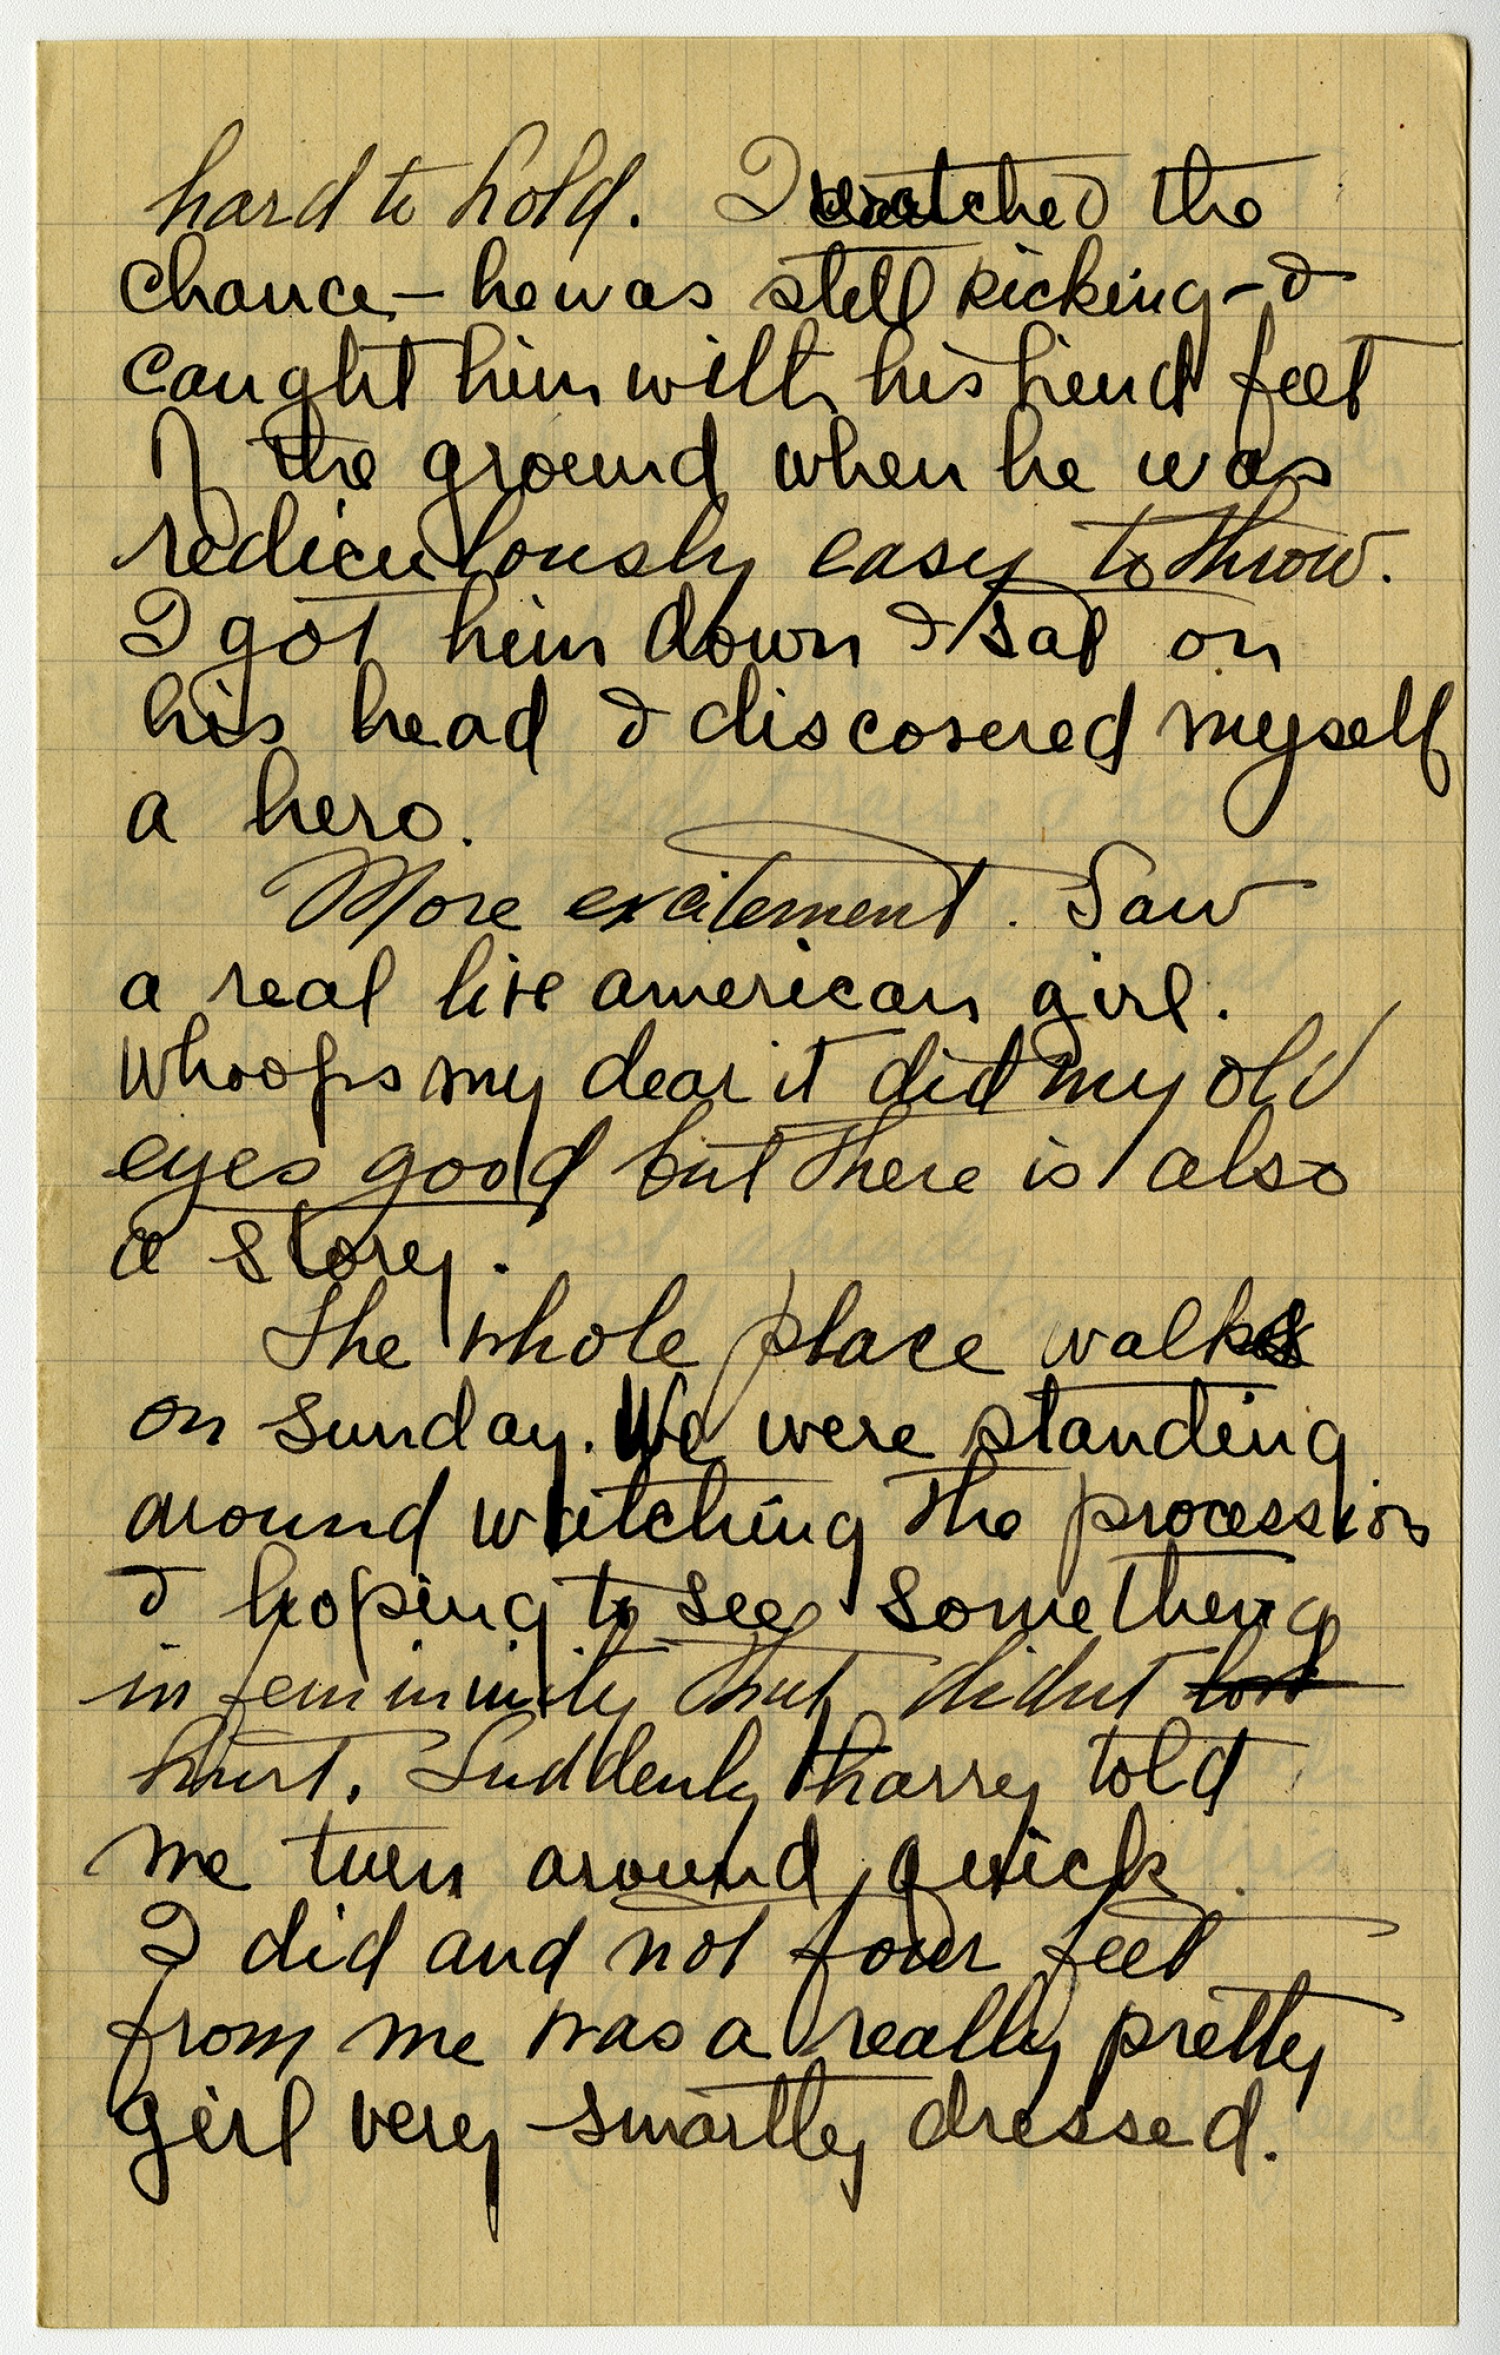 hard to hold. I watched the
chance – he was still kicking – &
caught him with his hind feet
of the ground when he was
rediculously easy to throw.
I got him down & sat on
his head & discovered myself
a hero.
More excitement. Saw
a real live american girl.
Whoops my dear it did my old
eyes good but there is also
a story.
The whole place walks
on Sunday. We were standing
around watching the procession
& hoping to see something
in femininity that didnt
hurt. Suddenly Harry told
me turn around quick.
I did and not four feet
from me was a really pretty
girl very smartly dressed.